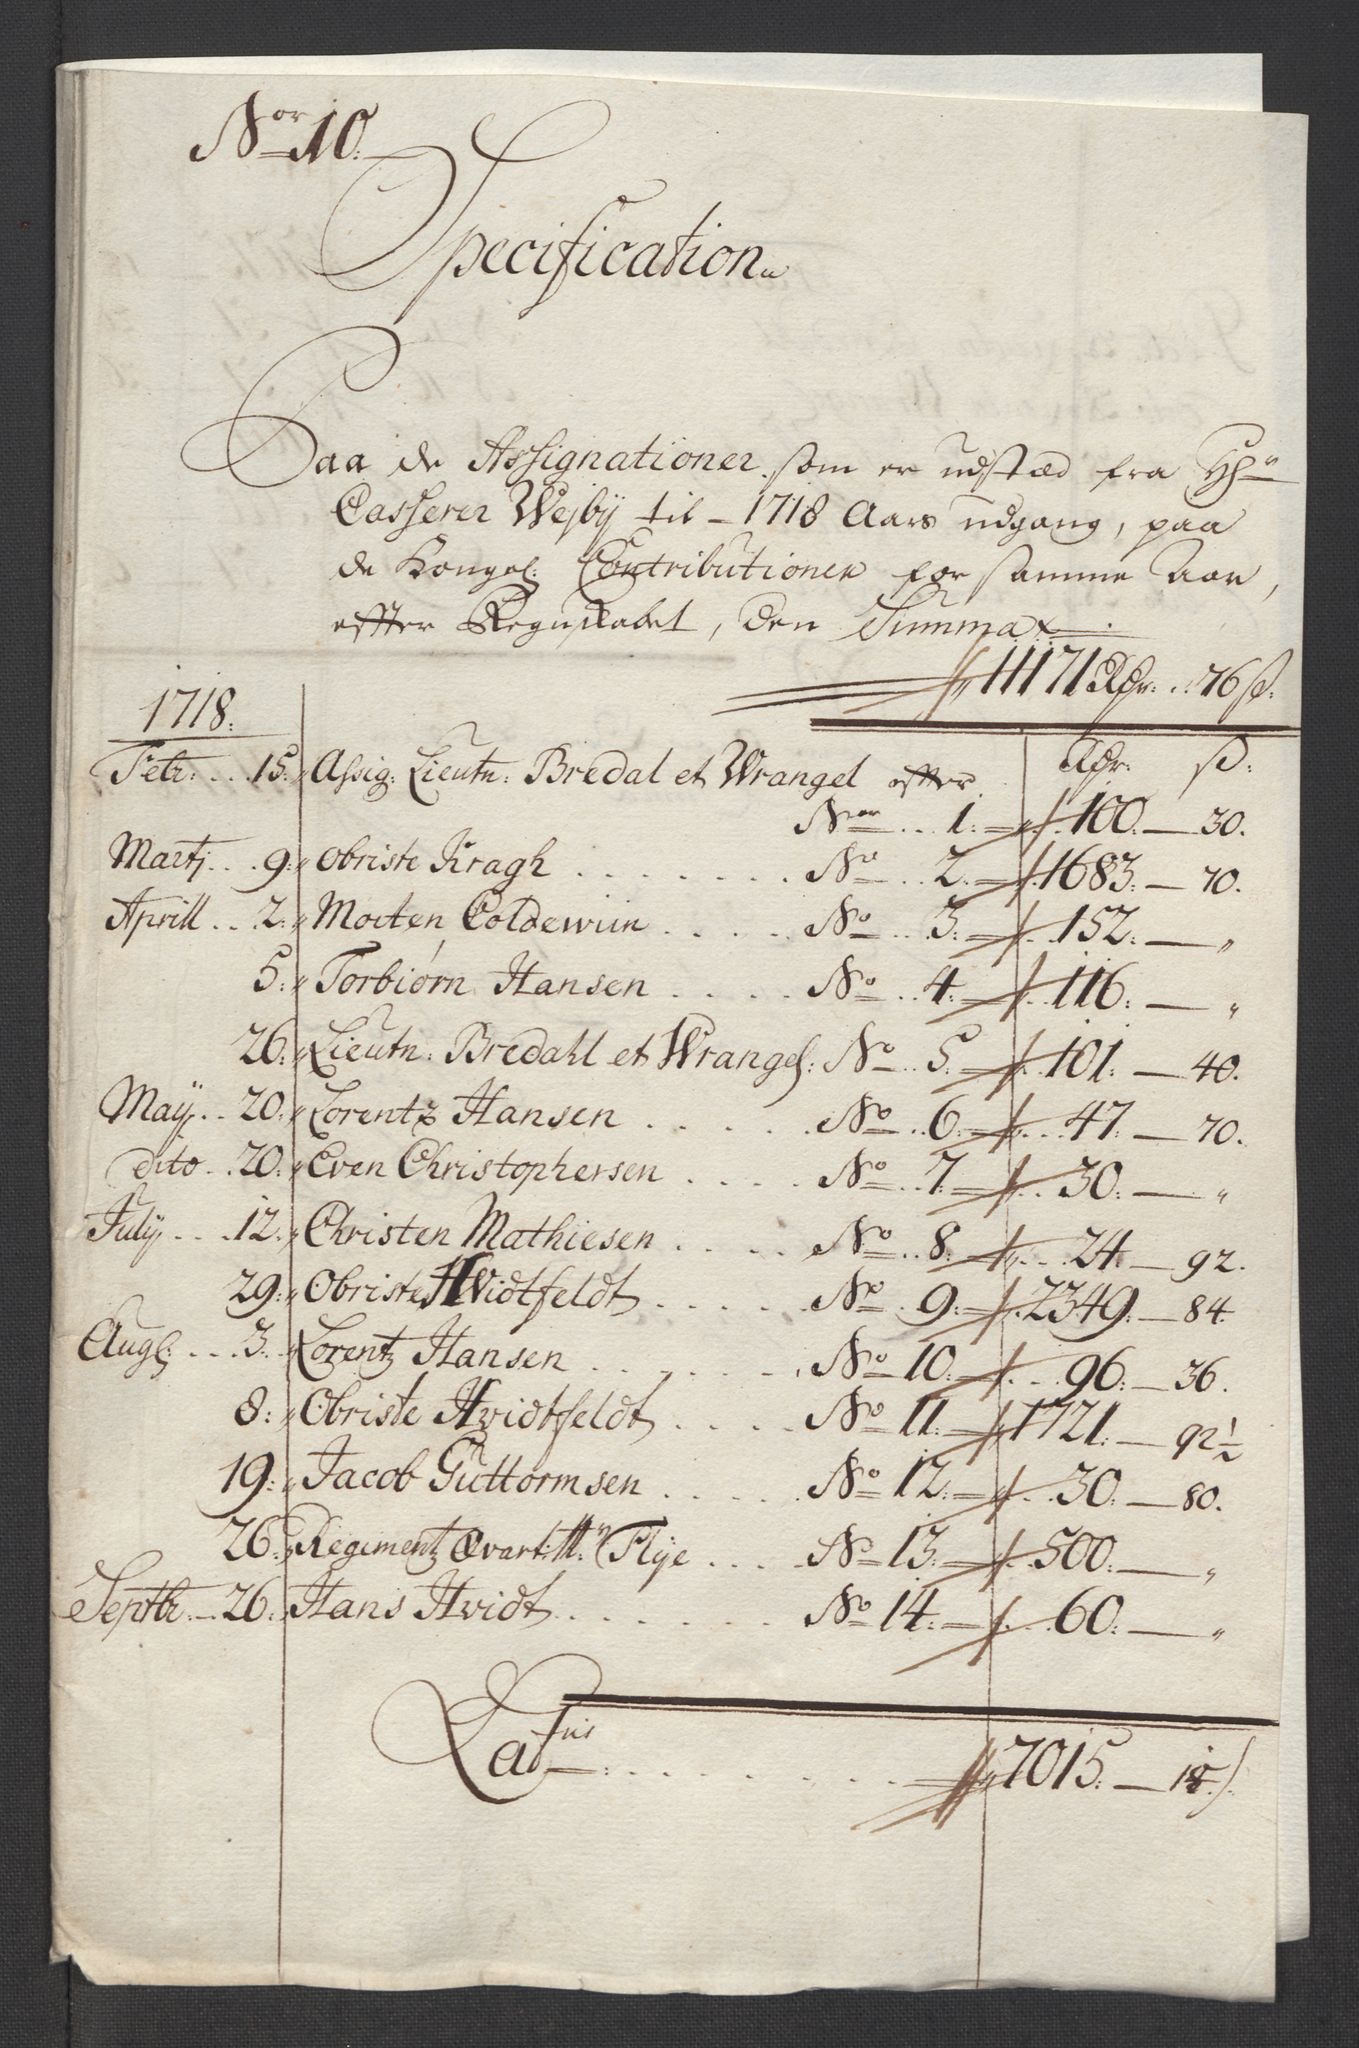 Nor 10.
Specification
Paa de Assignationer som er udstæd fra Hr
Casserer Wejby til 1718 Aars udgang, paa
de Kongel: Contributioner for samme Aar,
effter Regnskabet, den Summa
11171 Rdr: 76 ß:
1718:
Rdr: ß:
Febr: 15: Assig: Lieutn: Bredal et Wrangel effter
Nor 1: 100: 30.
Martj 9: Obriste Kragh No 2: 1683: 70.
Aprill 2: Morten Coldewiin No 3: 152: "
5: Torbiørn Hansen No 4: 116: "
26: Lieutn: Bredahl et Wrangel: No 5: 101: 40.
Maÿ 20: Lorentz Hansen No 6: 47: 70.
dito 20: Even Christophersen No 7: 30: "
Julÿ 12: Christen Mathiesen No 8: 24: 92.
29: Obriste Hvidtfeldt No 9: 2349: 84.
Aug: 3: Lorentz Hansen No 10: 96: 36.
8: Obriste Hvidtfeldt No 11: 1721: 92½
19: Jacob Guttormsen No 12: 30: 80.
26: Regimentz Qvart: Mr Flÿe No 13: 500: "
Septbr: 26: Hans Hvidt No 14: 60: "
Latus: 7015: 18½